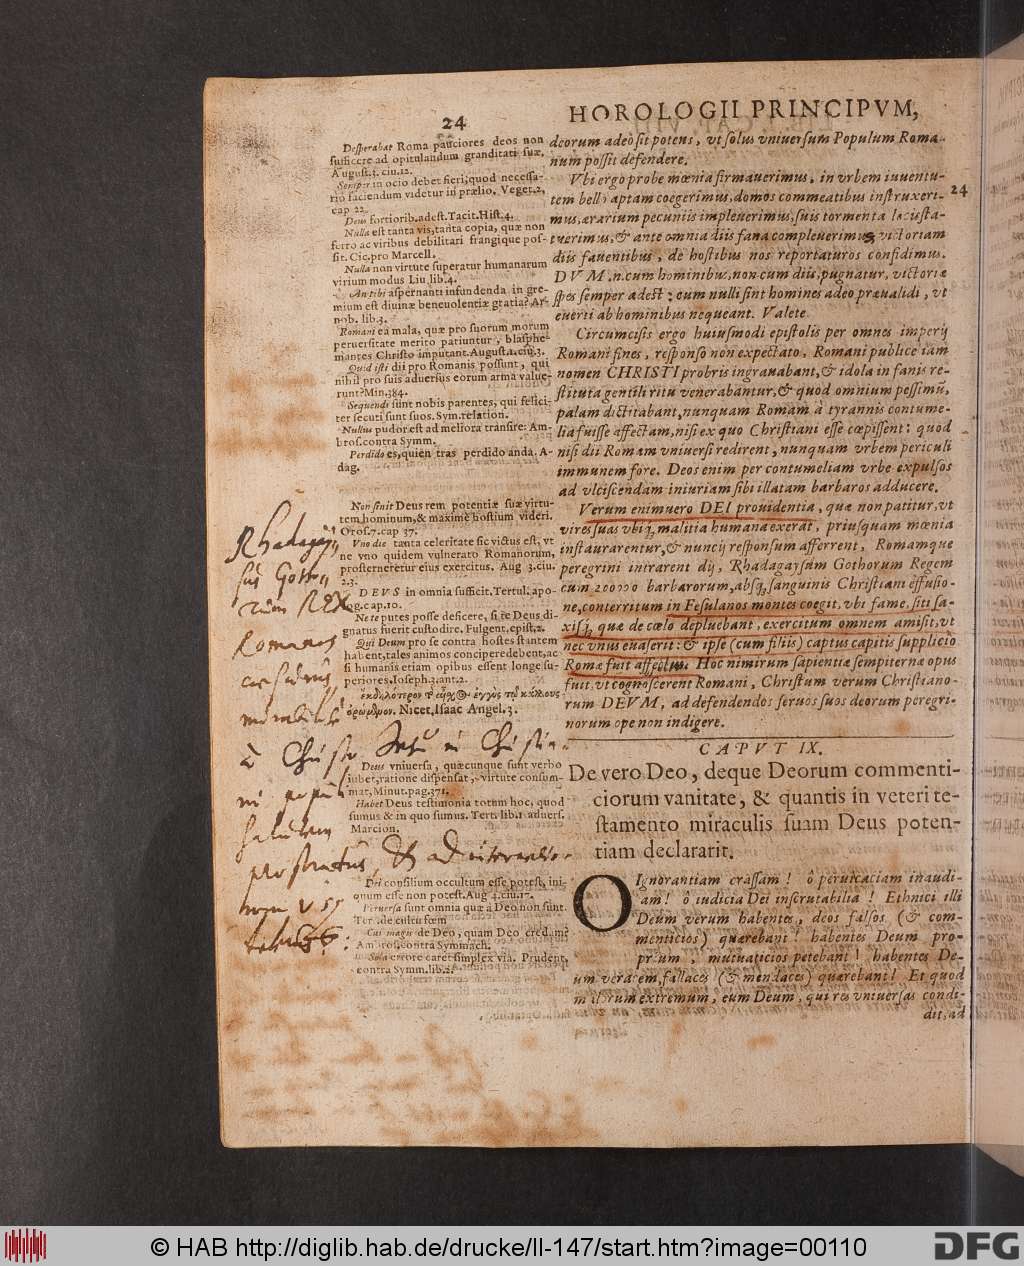 24
HOROLOGII PRINCIPVM,
Desperabae Roma pauciores deos non
sufficere ad opitulandum granditati suæ.
August.3.ciu.12.
Semper in ocio debet fieri, quod necessa-
rio faciendum videtur in prælio. Veget.2,
cap 22.
Deus fortiorib. adest. Tacit. Hist. 4.
Nulla est tanta vis, tanta copia, quæ non
ferro ac viribus debilitari frangique pos-
sit. Cic. pro Marcell.
Nulla non virtute superatur humanarum
virium modus Liu. lib. 4.
aspernanti infundenda in gre-
mium est diuinæ beneuolentiæ gratia? Ar
nob. lib. 3.
Romani ea mala, quæ pro suorum morum
peruersitate merito patiuntur, blasphe-
mantes Christo imputant. August.1.ciu.3.
Quid isti dii pro Romanis possunt, qui
nihil pro suis aduersus eorum arma value-
runt? Min.384.
Sequendi sunt nobis parentes, qui felici-
ter secuti sunt suos. Sym. relation.
Nullus pudor est ad meliora transire: Am-
bros. contra Symm.
Perdido es, quien tras perdido anda. A-
dag.
Non sinit Deus rem potentiæ suæ virtu-
tem hominum, & maximè hostium videri.
Oros.7.cap 37.
Vno die tanta celeritate sic victus est, vt
ne vno quidem vulnerato Romanorum,
prosterneretur eius exercitus. Aug 3.ciu.
2.3.
DEVS in omnia sufficit. Tertul. apo-
log. cap. 10.
Ne te putes posse deficere, si te Deus di-
gnatus fuerit custodire. Fulgent. epist. 2.
Qui Deum pro se contra hostes stantem
habent, tales animos conciperedebent, ac
si humanis etiam opibus essent longe su-
periores. Ioseph. 3. ant. 2.
Nicet. Isaac Angel. 3.
Deus vniuersa, quæcunque sunt verbo
iubet, ratione dispensat, virtute consum-
mat, Minut. pag. 371.
Habet Deus testimonia totum hoc, quod
sumus & in quo sumus. Tert. lib. 1 aduers.
Marcion.
Dei consilium occultum esse potest, ini-
quum esse non potest. Aug 4. ciu. 17.
Peruersa sunt omnia quæ à Deo non sunt.
Ter. de cultu fœm
Cui magis de Deo, quam Deo credam?
Ambros. contra Symmach.
Sola errore caret simplex via. Prudent.
contra Symm. lib. 2.
Rhadagaj
sus Gotho
rum REX
Romanos
à Christo
deorum adeò sit potens, vt solus vniuersum Populum Roma-
num possit defendere.
Vbi ergo probe mœnia firmauerimus, in vrbem iuuentu-
24
tem bello aptam coegerimus, domos commeatibus instruxeri-
mus, ærarium pecuniis impleuerimus, suis tormenta locis sta-
tuerimus, & ante omnia diis fana compleuerimus, victoriam
diis fauentibus, de hostibus nos reportaturos confidimus.
DVM .n. cum hominibus, non cum diis, pugnatur, victoriæ
spes semper adest: cum nulli sint homines adeo præualidi, vt
euerti ab hominibus nequeant. Valete.
Circumcisis ergo huiusmodi epistolis per omnes imperij
Romani fines, responso non expectato, Romani publice iam
nomen CHRISTI probris ingrauabant, & idola in fanis re-
stituta gentili ritu venerabantur, & quod omnium pessimũ,
palam dictitabant, nunquam Romam à tyrannis contume-
lia fuisse affectam, nisi ex quo Christiani esse cœpissent: quod
nisi dii Romam vniuersi redirent, nunquam vrbem periculi
immunem fore. Deos enim per contumeliam vrbe expulsos
ad vlciscendam iniuriam sibi illatam barbaros adducere.
Verum enimuero DEI prouidentia, quæ non patitur, vt
vires suas vbiq; malitia humana exerat, priusquam mœnia
instaurarentur, & nuncij responsum afferrent, Romamque
peregrini intrarent dij, Rhadagaysum Gothorum Regem
cum 200000 barbarorum, absq; sanguinis Christiani effusio-
ne, conterritum in Fesulanos montes coegit, vbi fame, siti sa-
xisq; quæ de cœlo depluebant, exercitum omnem amisit, vt
nec vnus euaserit: & ipse (cum filiis) captus capitis supplicio
Romæ fuit affectus. Hoc nimirum sapientiæ sempiternæ opus
fuit, vt cognoscerent Romani, Christum verum Christiano-
rum DEVM, ad defendendos seruos suos deorum peregri-
norum ope non indigere.
CAPVT IX.
De vero Deo, deque Deorum commenti-
ciorum vanitate, & quantis in veteri te-
stamento miraculis suam Deus poten-
tiam declararit.
O Ignorantiam crassam! ô peruicaciam inaudi-
am! ô iudicia Dei inscrutabilia! Ethnici illi
Deum verum habentes, deos falsos (& com-
menticios) quærebant! habentes Deum pro-
prium, mutuaticios petebant! habentes De-
um veracem, fallaces (& mendaces) quærebant! Et quod
malorum extremum, eum Deum, qui res vniuersas condi-
dit, ad
© HAB http://diglib.hab.de/drucke/ll-147/start.htm?image=00110
DFG